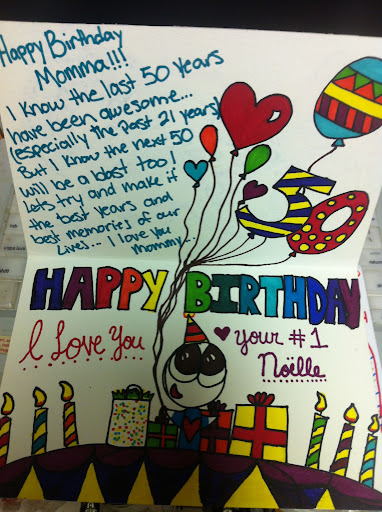 Happy Birthday
Momma!!!
I know the last 50 years
have been awesome...
(especially the past 21 years)
But I know the next 50
will be a blast too!
Lets try and make it
the best years and
best memories of our
Lives... I love you
mommy...
50
HAPPY BIRTHDAY
I Love You
your #1
Noëlle